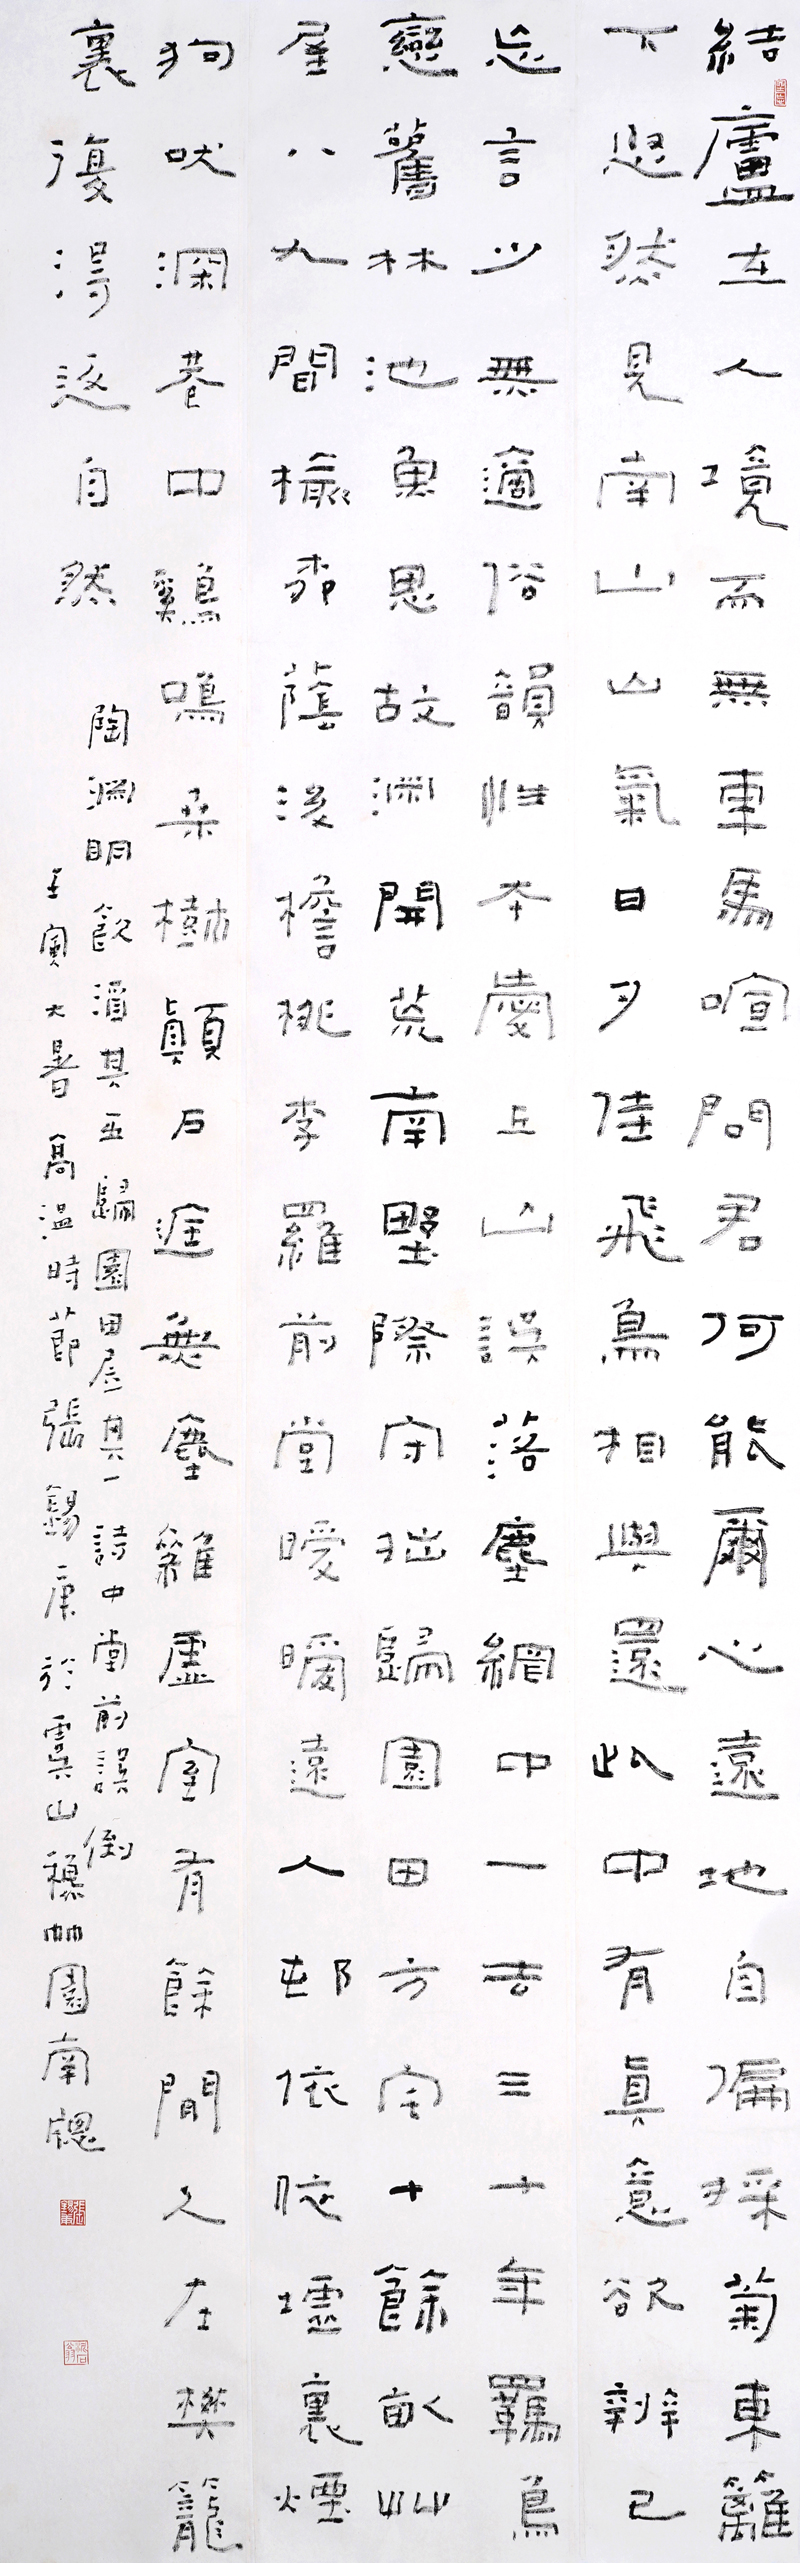 結廬在人境而無車馬喧問君何能爾心遠地自偏採菊東籬
下悠然見南山山氣日夕佳飛鳥相與還此中有真意欲辨已
忘言少無適俗韻性本愛丘山誤落塵網中一去三十年羈鳥
戀舊林池魚思故淵開荒南野際守拙歸園田方宅十餘畝艸
屋八九間榆柳蔭後檐桃李羅前堂曖曖遠人邨依依墟裏煙
狗吠深巷中鷄鳴桑樹顛戶庭無塵雜虛室有餘閒久在樊籠
裏復得返自然
陶淵明飲酒其五歸園田居其一詩中堂前誤倒
壬寅大暑高溫時節張錫庚於虞山竹園南牕